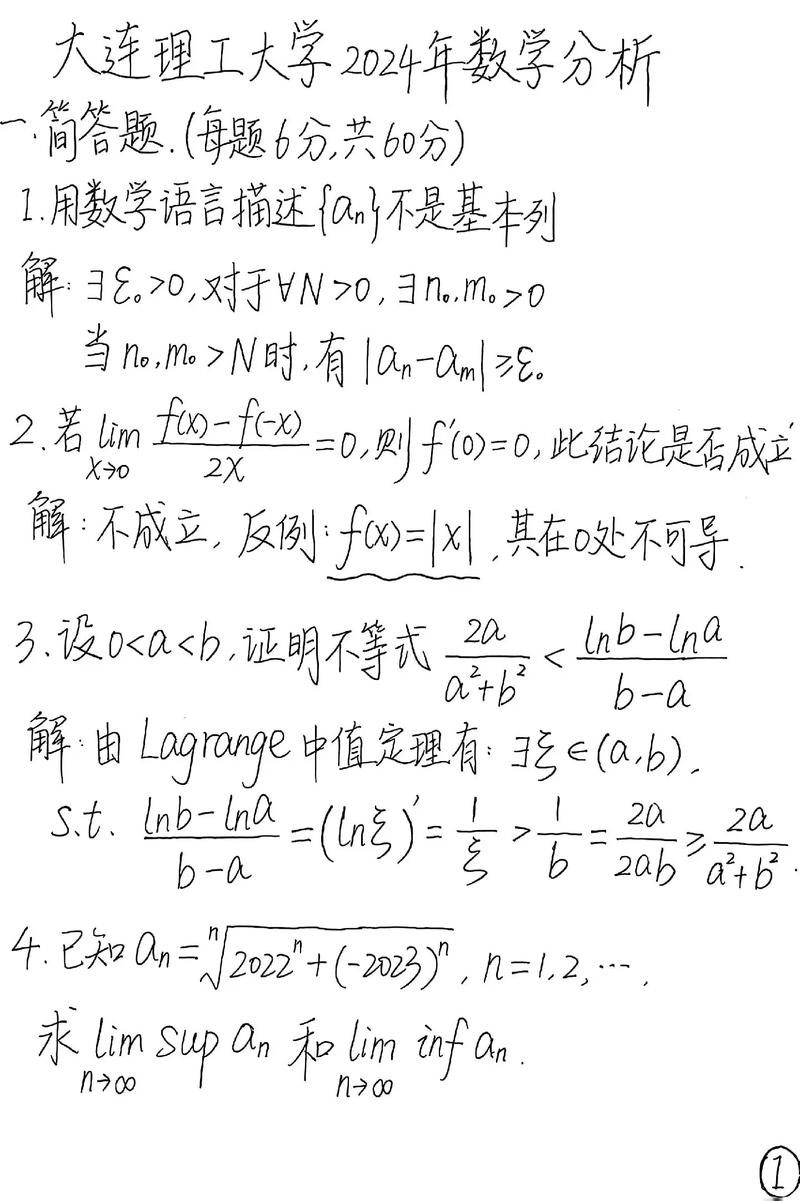 大连理工大学2024年数学分析
一.简答题.(每题6分,共60分)
1.用数学语言描述{aₙ}不是基本列
解:∃ε₀>0,对于∀N>0,∃n₀,m₀>0
当n₀,m₀>N时,有|aₙ-aₘ|≥ε₀
2.若 lim_{x→0} (f(x)-f(-x))/(2x) =0,则f'(0)=0,此结论是否成立
解:不成立,反例:f(x)=|x|,其在0处不可导.
3.设0<a<b,证明不等式 2a/(a²+b²) < (lnb-lna)/(b-a)
解:由Lagrange中值定理有:∃ξ∈(a,b),
s.t. (lnb-lna)/(b-a) =(lnξ)'= 1/ξ > 1/b = 2a/(2ab) ≥ 2a/(a²+b²).
4.已知aₙ=ⁿ√(2022ⁿ+(-2023)ⁿ), n=1,2,…,
求 lim_{n→∞} sup aₙ 和 lim_{n→∞} inf aₙ.
①